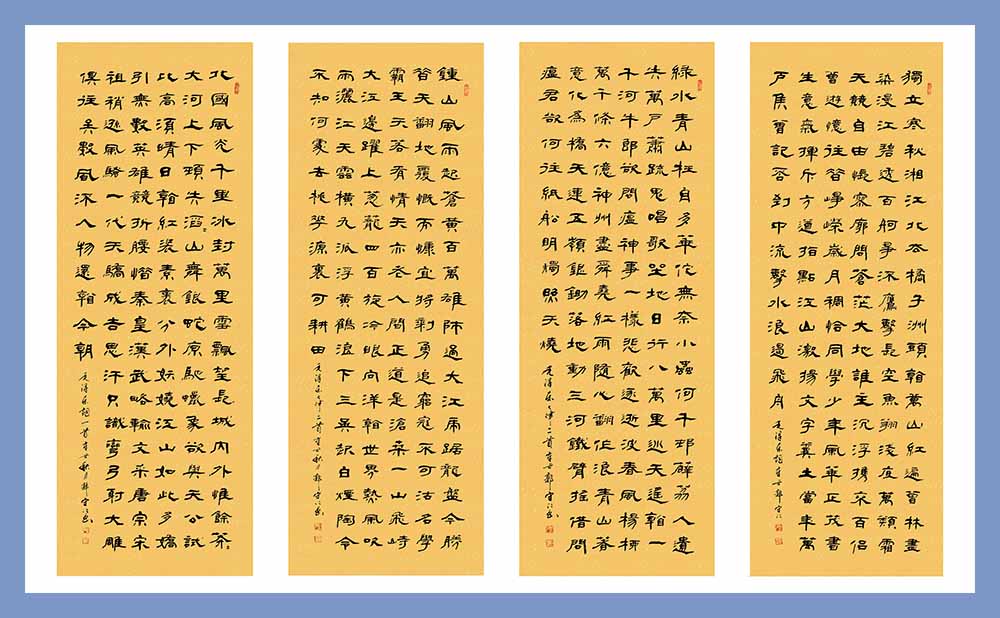 獨立寒秋湘江北去橘子洲頭看萬山紅遍層林盡
染漫江碧透百舸爭流鷹擊長空魚翔淺底萬類霜
天競自由悵寥廓問蒼茫大地誰主沉浮攜來百侶
曾遊憶往昔崢嶸歲月稠恰同學少年風華正茂書
生意氣揮斥方遒指點江山激揚文字糞土當年萬
戶侯曾記否到中流擊水浪遏飛舟 毛澤東詞辛丑
綠水青山枉自多華佗無奈小蟲何千邨薜荔人遺
矢萬戶蕭疏鬼唱歌坐地日行八萬里巡天遙看一
千河牛郎欲問瘟神事一樣悲歡逐逝波春風楊柳
萬千條六億神州盡舜堯紅雨隨心翻作浪青山著
意化為橋天連五嶺銀鋤落地動三河鐵臂搖借問
瘟君欲何往紙船明燭照天燒 毛澤東七律二首辛丑
鍾山風雨起蒼黃百萬雄師過大江虎踞龍盤今勝
昔天翻地覆慨而慷宜將剩勇追窮寇不可沽名學
霸王天若有情天亦老人間正道是滄桑一山飛峙
大江邊躍上蔥蘢四百旋冷眼向洋看世界熱風吹
雨灑江天雲橫九派浮黃鶴浪下三吳起白煙陶令
不知何處去桃花源裏可耕田 毛澤東七律二首辛丑秋月
北國風光千里冰封萬里雪飄望長城內外惟餘莽
大河上下頓失滔山舞銀蛇原馳蠟象欲與天公試
比高須晴日看紅裝素裹分外妖嬈江山如此多嬌
引無數英雄競折腰惜秦皇漢武略輸文采唐宗宋
祖稍遜風騷一代天驕成吉思汗只識彎弓射大雕
俱往矣數風流人物還看今朝 毛澤東詞一首辛丑秋月